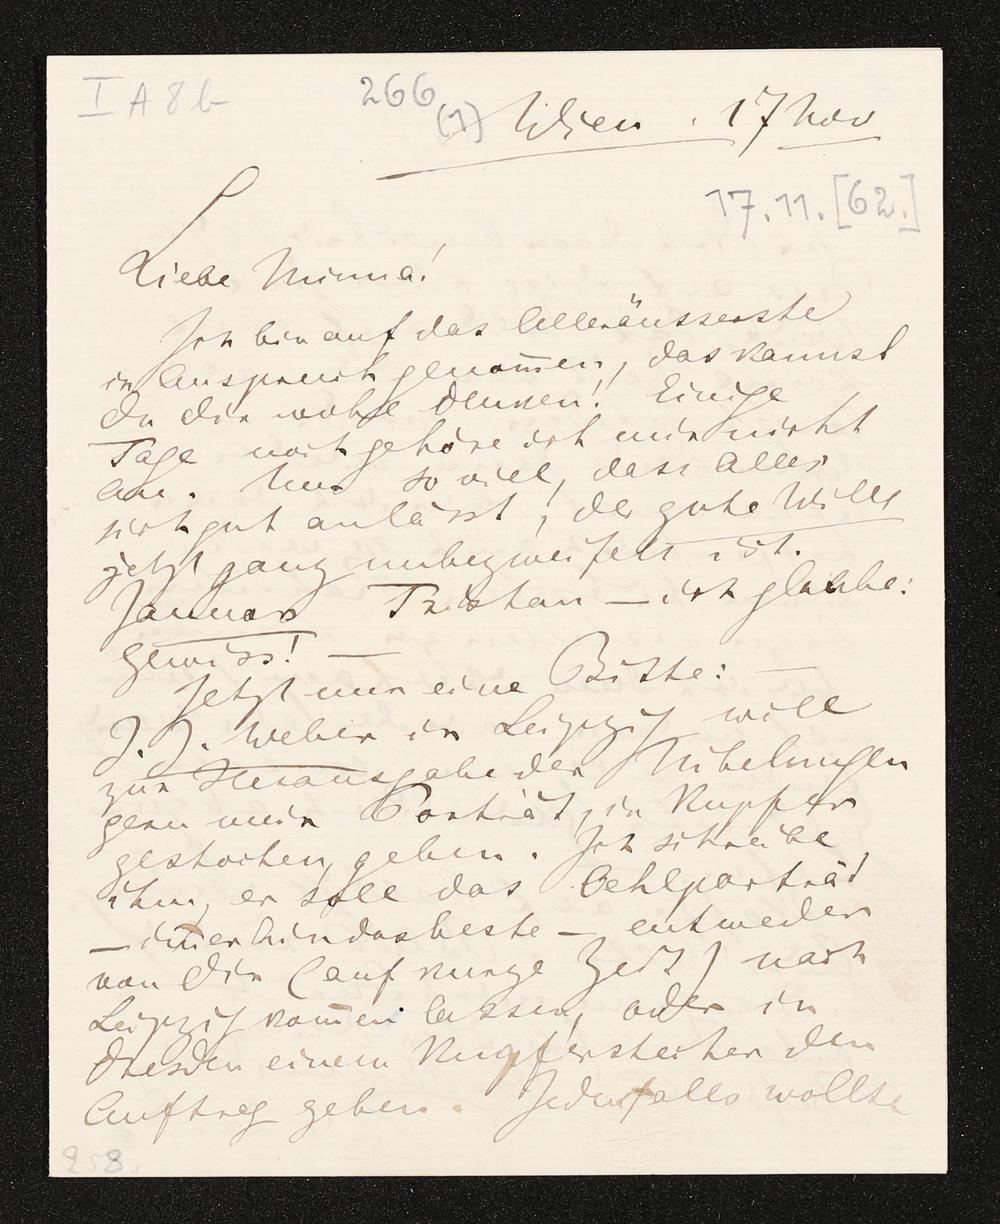 I A 8 b
266
(1)
Wien. 17 Nov
17.11.[62.]
Liebe Minna!
Ich bin auf das Alleräusserste
in Anspruch genom̅en, das kannst
du dir wohl denken! Einige
Tage noch gehöre ich mir nicht
an. Nur so viel, dass Alles
sich gut anlässt, der gute Wille
jetzt ganz unbezweifelt ist.
Januar Tristan — ich glaube:
gewiss! —
Jetzt nur eine Bitte: —
J. J. Weber in Leipzig will
zur Herausgabe der Nibelungen
gern mein Porträt, in Kupfer
gestochen, geben. Ich schreibe
ihm, er solle das Oehlporträt
— im̅erhin das beste — entweder
von dir (auf kurze Zeit) nach
Leipzig kom̅en lassen, oder in
Dresden einem Kupferstecher den
Auftrag geben. Jedenfalls wollte
258.